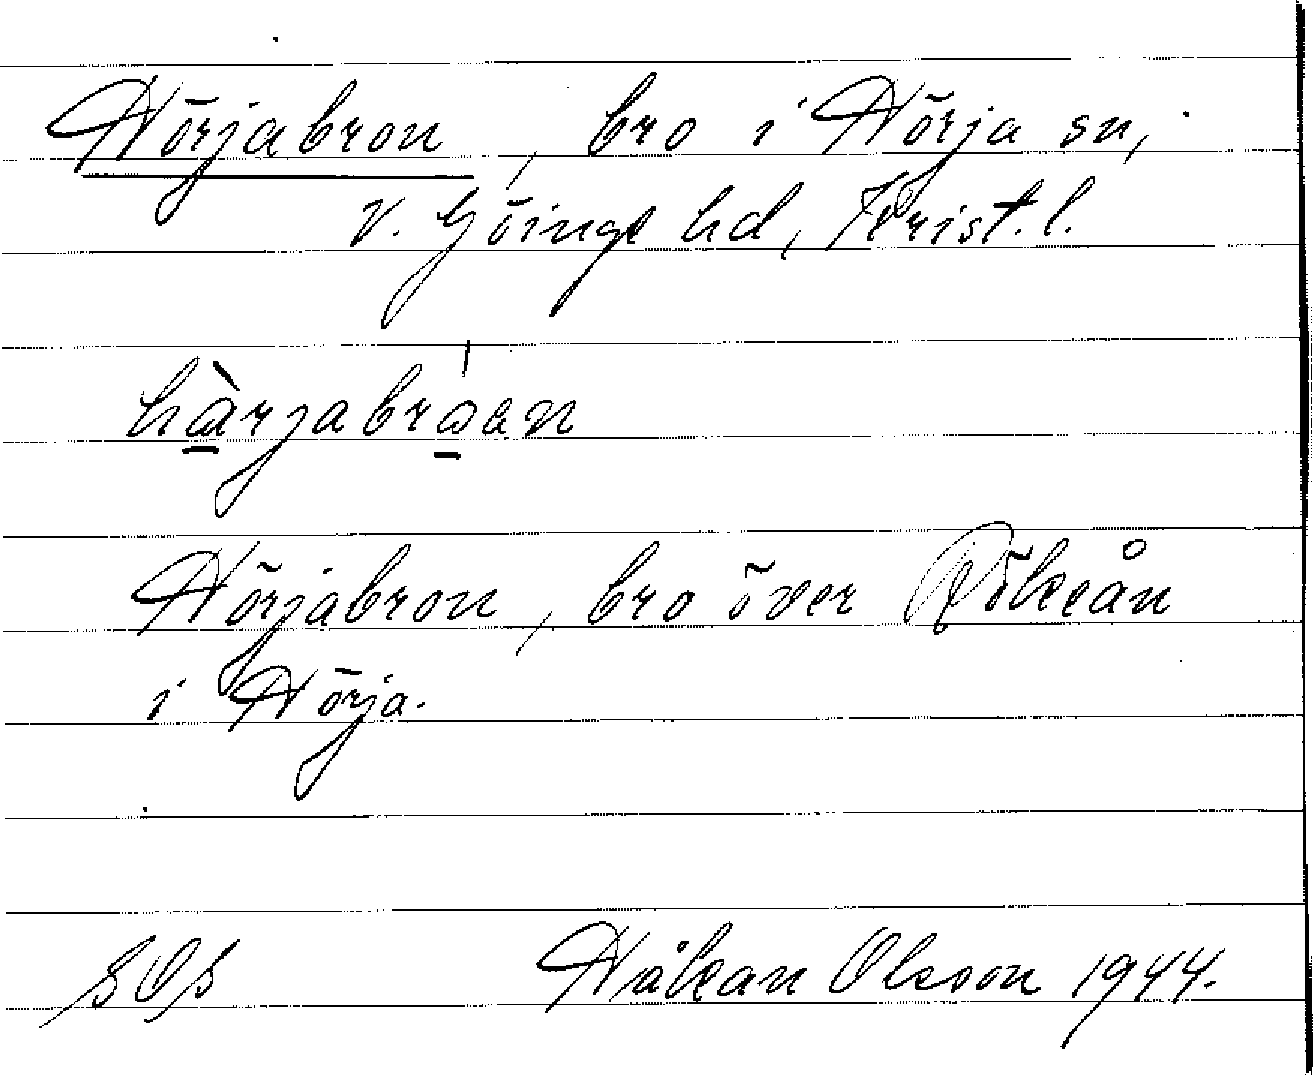 Hörjabron, bro i Hörja sn,
V. Göinge hd, Krist. l.
hàrjabroen
Hörjabron, bro över Rökeån
i Hörja.
SOS Håkan Olsson 1944.